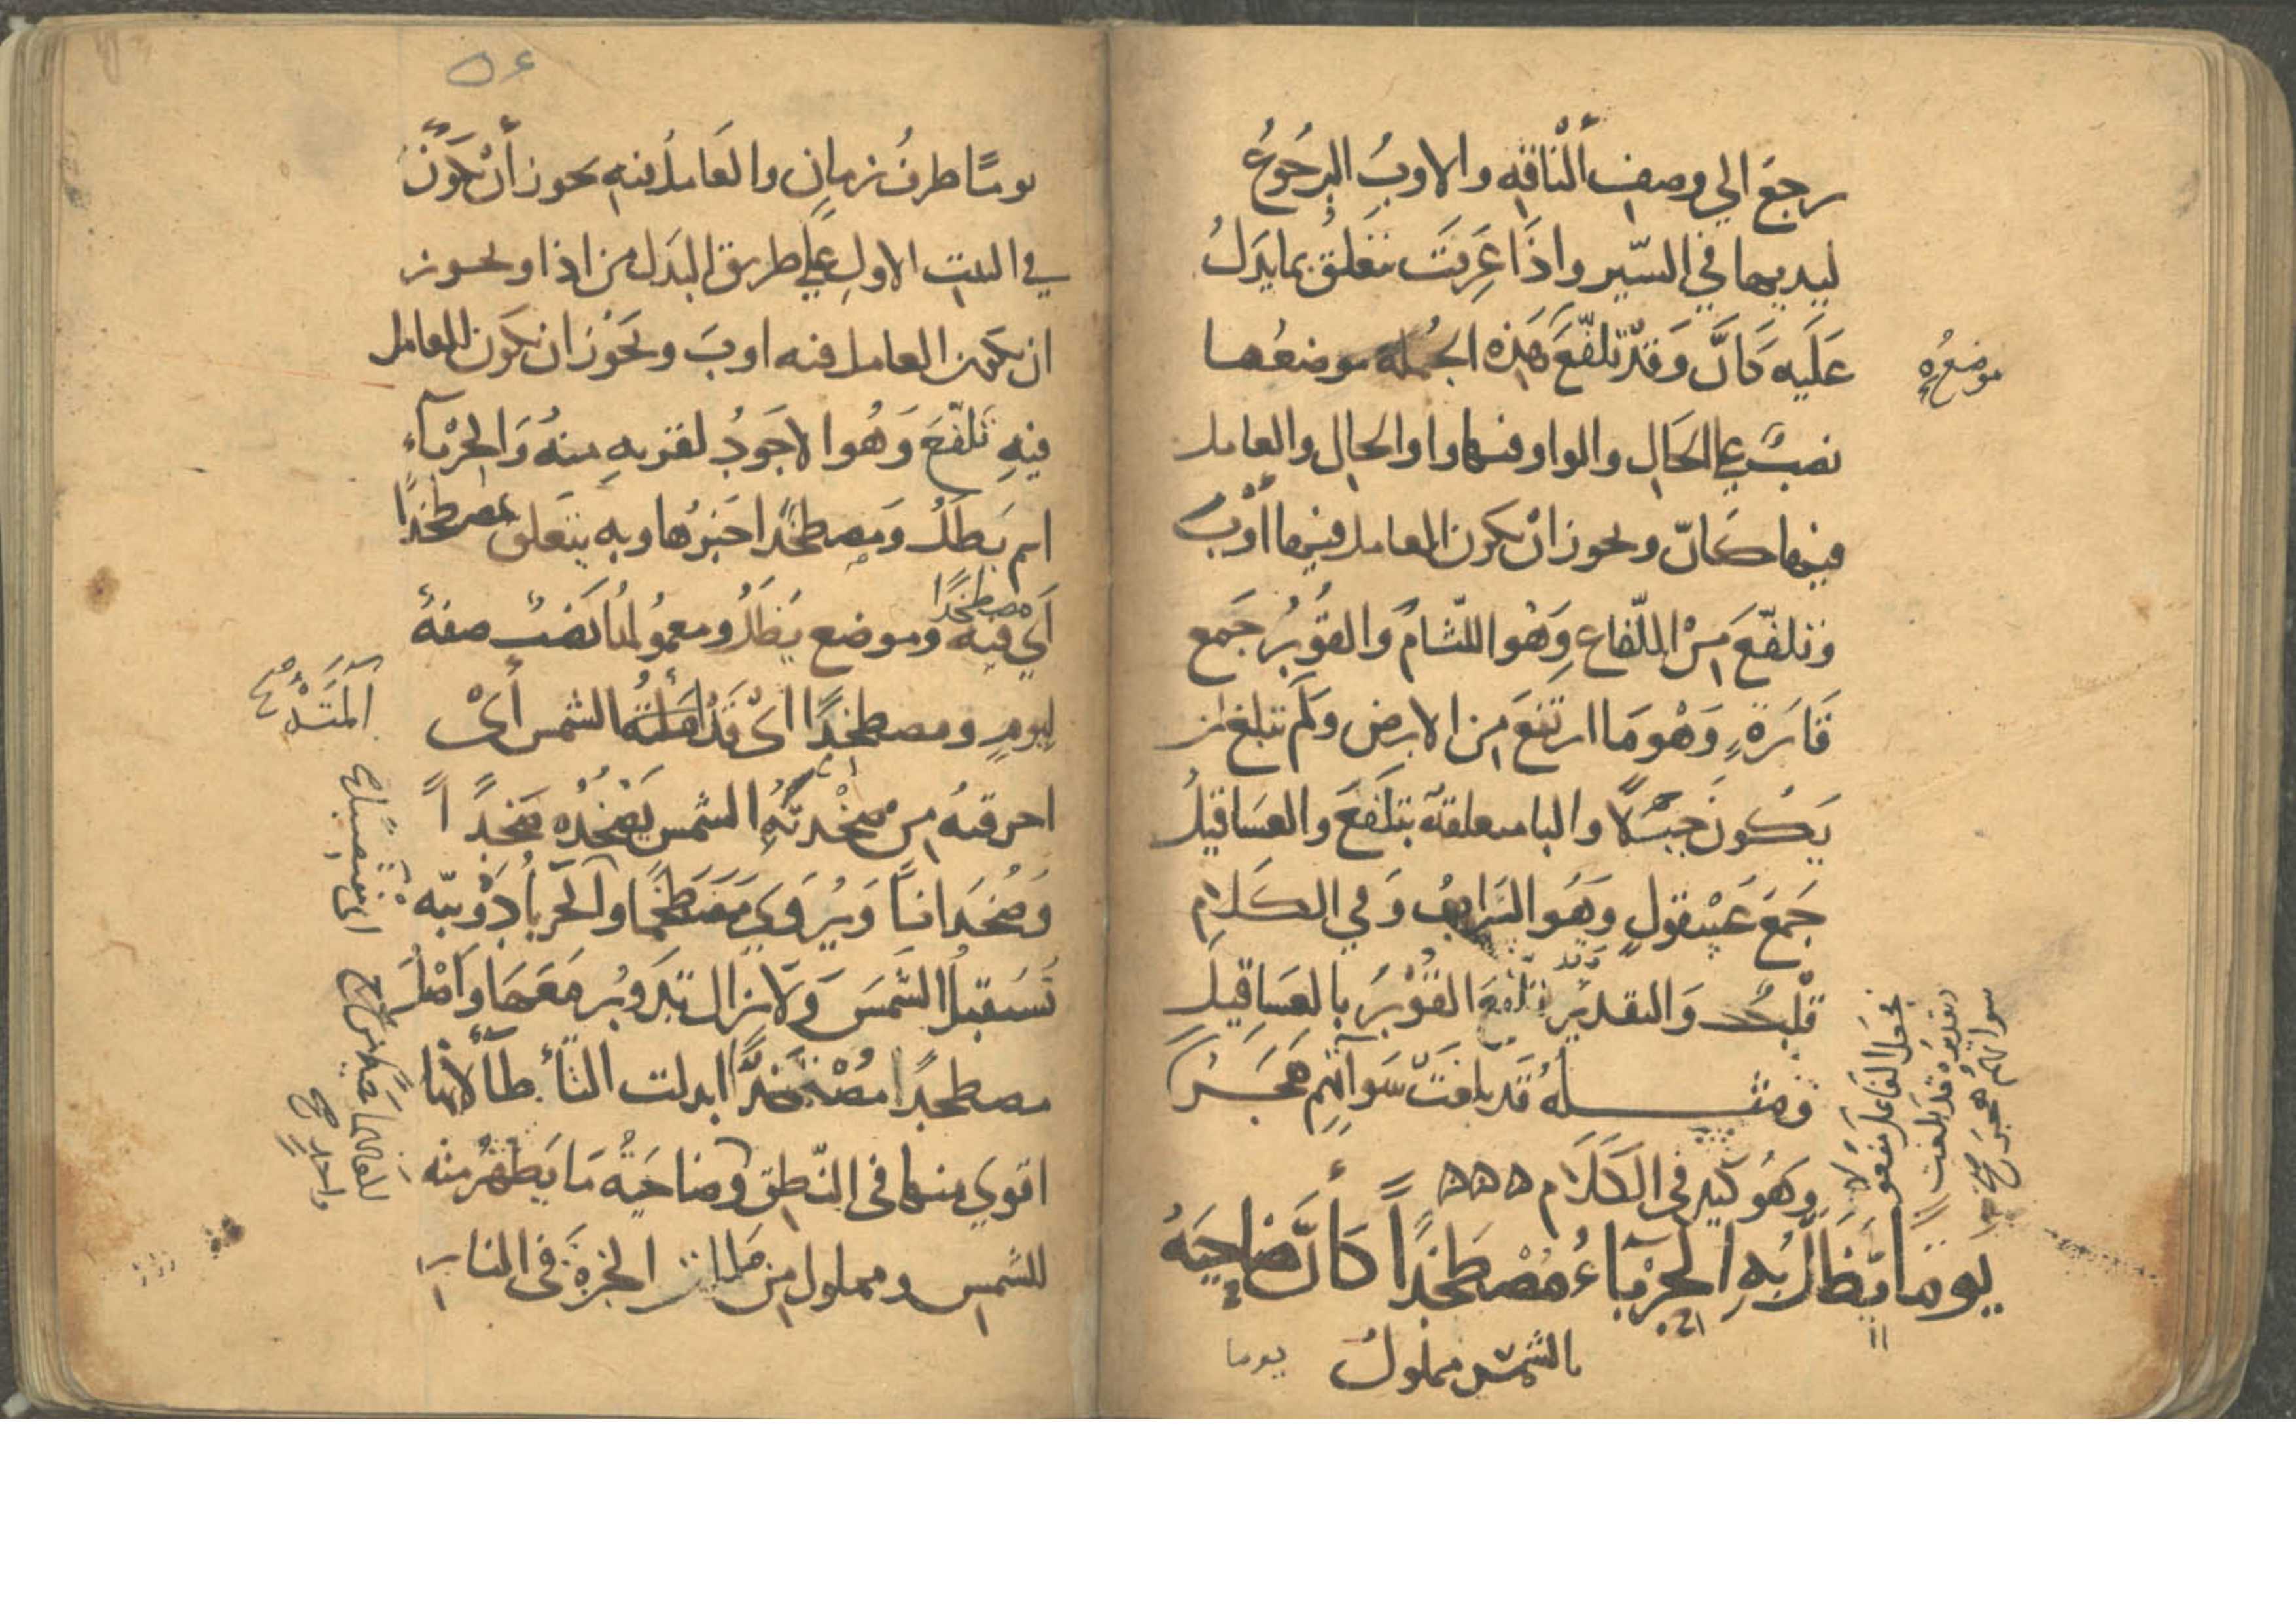 رجع الي وصف ألناقه والاوب الرجوع
ليديها في السير واذا عرقت تتعلق بما يدل
عليه كان وقد تلفع هذه الجمله موضعها
موضعه
نصب علي الحال والواو فيها واو الحال والعامل
فيها كان ويجوز ان يكون العامل فيها أوب
وتلفع من اللفاع وهو اللثام والقور جمع
قارة وهو ما ارتفع من الارض ولم تبلغ ان
يكون جبلا والبا متعلقة بتلفع والعساقيل
جمع عسقول وهو السراب وفي الكلام
قلب والتقدير وقد تلفع القور بالعساقيل
ومثله قد بلغت سوآتهم هجر
وهو كثير في الكلام ٥٥٥
يجعل الفاعل مفعولا
تقديره قد بلغت
سواتهم هجر صح
يوما يظل به الحرباء مصطخدا كأن ضاحيه
بالشمس مملول
يوما
٥٤
يوما ظرف زمان والعامل فيه يجوز أن يكون
في البيت الاول علي طريق البدل من اذا ويجوز
ان يكون العامل فيه اوب ويجوز ان يكون العامل
فيه تلفع وهو الاجود لقربه منه والحرباء
اسم يظل ومصطخدا خبرها وبه يتعلق بمصطخدا
اي مصطخدا فيه وموضع يظل ومعمولها نصب صفة
ليوم ومصطخدا اي قد الشمس أي
احرقته من صخدته الشمس يصخده صخدا
وصخدانا ويروي مصطخما والحربا دويبه
تستقبل الشمس ولا تزال تدور معها واصل
مصطخدا مصتخدا ابدلت التأ طآ لانها
اقوي منها في النطق وضاحية ما يظهر منه
للشمس ومملول من مللت الخبزة في النار